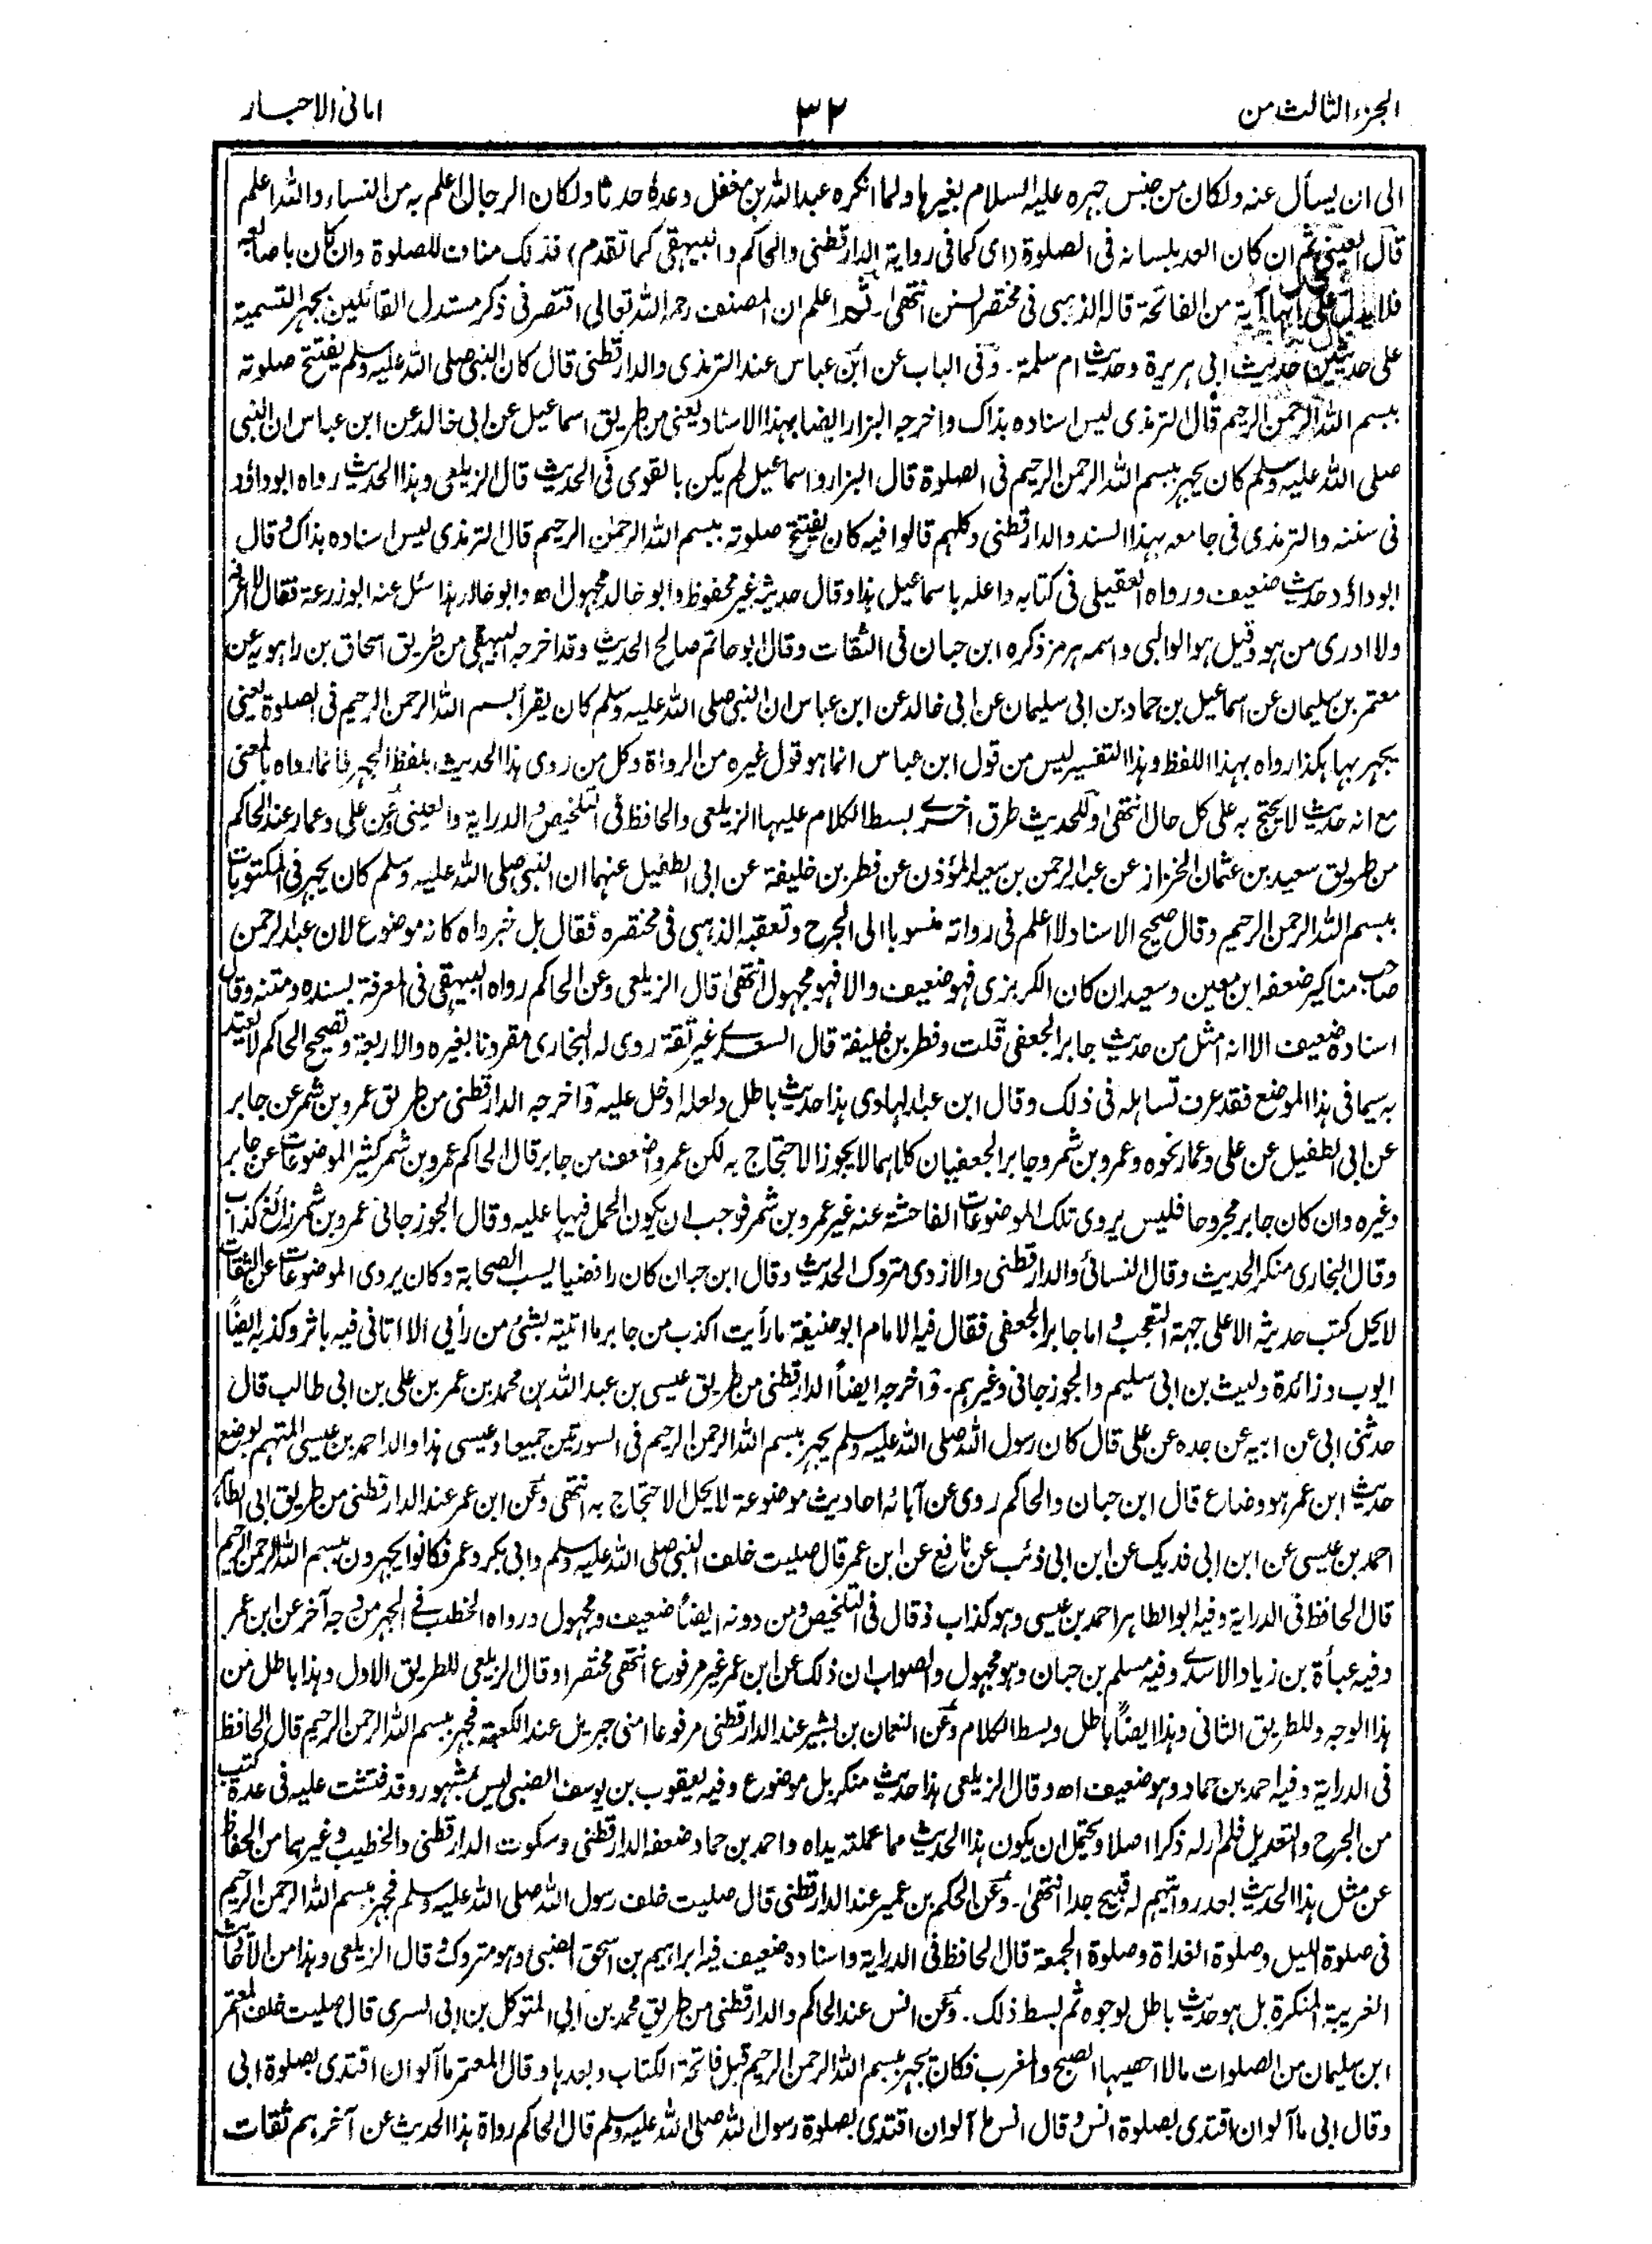 الجزء الثالث من ٣٢ امانی الاحبار
الی ان یسأل عنه ولکان من جنس جهره علیه السلام بغیرها ولما انکره عبد الله بن مغفل وعده حدثا ولکان الرجال اعلم به من النساء والله اعلم
قال العینی ثم ان کان العد بلسانه فی الصلوة (ای کما فی روایة الدارقطنی والحاکم والبیهقی کما تقدم) فذلک مناف للصلوة وان کان باصابعه
فلا یدل علی انها آیة من الفاتحة قاله الذهبی فی مختصر السنن انتهیٰ۔ ثم اعلم ان المصنف رحمه الله تعالی اقتصر فی ذکر مستدل القائلین بجهر التسمیة
علی حدیثین حدیث ابی هریرة وحدیث ام سلمة۔ وفی الباب عن ابن عباس عند الترمذی والدارقطنی قال کان النبی صلی الله علیه وسلم یفتتح صلوته
ببسم الله الرحمن الرحیم قال الترمذی لیس اسناده بذاک واخرجه البزار ایضا بهذا الاسناد یعنی من طریق اسماعیل عن ابی خالد عن ابن عباس ان النبی
صلی الله علیه وسلم کان یجهر ببسم الله الرحمن الرحیم فی الصلوة قال البزار واسماعیل لم یکن بالقوی فی الحدیث قال الزیلعی وهذا الحدیث رواه ابوداؤد
فی سننه والترمذی فی جامعه بهذا السند والدارقطنی وکلهم قالوا فیه کان یفتتح صلوته ببسم الله الرحمن الرحیم قال الترمذی لیس اسناده بذاک وقال
ابوداؤد حدیث ضعیف ورواه العقیلی فی کتابه واعله باسماعیل هذا وقال حدیثه غیر محفوظ وابو خالد مجهول اھ وابو خالد هذا سئل عنه ابو زرعة فقال لا اعرفه
ولا ادری من هو وقیل هو الوالبی واسمه هرمز ذکره ابن حبان فی الثقات وقال ابو حاتم صالح الحدیث وقد اخرجه البیهقی من طریق اسحاق بن راهویه عن
معتمر بن سلیمان عن اسماعیل بن حماد بن ابی سلیمان عن ابی خالد عن ابن عباس ان النبی صلی الله علیه وسلم کان یقرأ بسم الله الرحمن الرحیم فی الصلوة یعنی
یجهر بها هکذا رواه بهذا اللفظ وهذا التفسیر لیس من قول ابن عباس انما هو قول غیره من الرواة وکل من روی هذا الحدیث بلفظ الجهر فانما رواه بالمعنی
مع انه حدیث لا یحتج به علی کل حال انتهیٰ وللحدیث طرق اخرے بسط الکلام علیها الزیلعی والحافظ فی التلخیص والدرایة والعینی وعن علی وعمار عند الحاکم
من طریق سعید بن عثمان الخراز عن عبد الرحمن بن سعید المؤذن عن فطر بن خلیفة عن ابی الطفیل عنهما ان النبی صلی الله علیه وسلم کان یجهر فی المکتوبات
ببسم الله الرحمن الرحیم وقال صحیح الاسناد لا اعلم فی رواته منسوبا الی الجرح وتعقبه الذهبی فی مختصره فقال بل خبر واه کانه موضوع لان عبد الرحمن
صاحب مناکیر ضعفه ابن معین وسعید ان کان الکریزی فهو ضعیف والا فهو مجهول انتهیٰ قال الزیلعی وعن الحاکم رواه البیهقی فی المعرفة بسنده ومتنه وقال
اسناده ضعیف الا انه امثل من حدیث جابر الجعفی قلت وفطر بن خلیفة قال السعدے غیر ثقة روی له البخاری مقرونا بغیره والاربعة وتصحیح الحاکم لا یعتد
به سیما فی هذا الموضع فقد عرف تساهله فی ذلک وقال ابن عبد الهادی هذا حدیث باطل ولعله ادخل علیه واخرجه الدارقطنی من طریق عمرو بن شمر عن جابر
عن ابی الطفیل عن علی وعمار نحوه وعمرو بن شمر وجابر الجعفیان کلاهما لا یجوز الاحتجاج به لکن عمرو اضعف من جابر قال الحاکم عمرو بن شمر کثیر الموضوعات عن جابر
وغیره وان کان جابر مجروحا فلیس یروی تلک الموضوعات الفاحشة عنه غیر عمرو بن شمر فوجب ان یکون الحمل فیها علیه وقال الجوزجانی عمرو بن شمر زائغ کذاب
وقال البخاری منکر الحدیث وقال النسائی والدارقطنی والازدی متروک الحدیث وقال ابن حبان کان رافضیا یسب الصحابة وکان یروی الموضوعات عن الثقات
لا یحل کتب حدیثه الا علی جهة التعجب واما جابر الجعفی فقال فیه الامام ابو حنیفة ما رأیت اکذب من جابر ما اتیته بشئ من رأیی الا اتانی فیه باثر وکذبه ایضًا
ایوب وزائدة ولیث بن ابی سلیم والجوزجانی وغیرهم۔ واخرجه ایضاً الدارقطنی من طریق عیسی بن عبد الله بن محمد بن عمر بن علی بن ابی طالب قال
حدثنی ابی عن ابیه عن جده عن علی قال کان رسول الله صلی الله علیه وسلم یجهر ببسم الله الرحمن الرحیم فی السورتین جمیعا وعیسی هذا والد احمد بن عیسی المتهم بوضع
حدیث ابن عمر هو وضاع قال ابن حبان والحاکم روی عن آبائه احادیث موضوعة لا یحل الاحتجاج به انتهی وعن ابن عمر عند الدارقطنی من طریق ابی الطاهر
احمد بن عیسی عن ابن ابی فدیک عن ابن ابی ذئب عن نافع عن ابن عمر قال صلیت خلف النبی صلی الله علیه وسلم وابی بکر وعمر فکانوا یجهرون ببسم الله الرحمن الرحیم
قال الحافظ فی الدرایة وفیه ابو الطاهر احمد بن عیسی وهو کذاب وقال فی التلخیص ومن دونه ایضاً ضعیف ومجهول ورواه الخطیب فے الجهر من وجه آخر عن ابن عمر
وفیه عباءة بن زیاد الاسدے وفیه مسلم بن حبان وهو مجهول والصواب ان ذلک عن ابن عمر غیر مرفوع انتهی مختصرا وقال الزیلعی للطریق الاول وهذا باطل من
هذا الوجه وللطریق الثانی وهذا ایضاً باطل وبسط الکلام وعن النعمان بن بشیر عند الدارقطنی مرفوعا امنی جبریل عند الکعبة فجهر ببسم الله الرحمن الرحیم قال الحافظ
فی الدرایة وفیه احمد بن حماد وهو ضعیف اھ وقال الزیلعی هذا حدیث منکر بل موضوع وفیه یعقوب بن یوسف الضبی لیس بمشهور وقد فتشت علیه فی عدة کتب
من الجرح والتعدیل فلم ار له ذکرا اصلا ویحتمل ان یکون هذا الحدیث مما عملته یداه واحمد بن حماد ضعفه الدارقطنی وسکوت الدارقطنی والخطیب وغیرهما من الحفاظ
عن مثل هذا الحدیث بعد روایتهم له قبیح جدا انتهیٰ۔ وعن الحکم بن عمیر عند الدارقطنی قال صلیت خلف رسول الله صلی الله علیه وسلم فجهر ببسم الله الرحمن الرحیم
فی صلوة اللیل وصلوة الغداة وصلوة الجمعة قال الحافظ فی الدرایة واسناده ضعیف فیه ابراهیم بن اسحق الضبی وهو متروک وقال الزیلعی وهذا من الاحادیث
الغریبة المنکرة بل هو حدیث باطل لوجوه ثم بسط ذلک۔ وعن انس عند الحاکم والدارقطنی من طریق محمد بن ابی المتوکل بن ابی السری قال صلیت خلف المعتمر
ابن سلیمان من الصلوات مالا احصیها الصبح والمغرب فکان یجهر ببسم الله الرحمن الرحیم قبل فاتحة الکتاب وبعدها وقال المعتمر ما آلو ان اقتدی بصلوة ابی
وقال ابی ما آلو ان اقتدی بصلوة انس وقال انس ما آلو ان اقتدی بصلوة رسول الله صلی الله علیه وسلم قال الحاکم رواة هذا الحدیث عن آخرهم ثقات